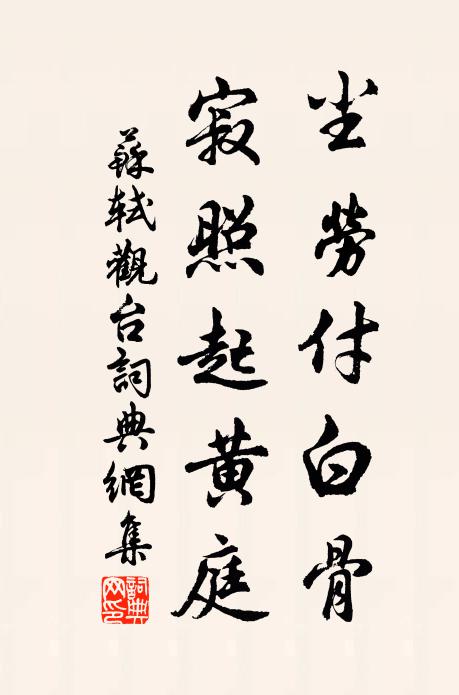 尘勞付白骨
寂照起黄庭
蘇軾觀台詞典網集
詞典
网印